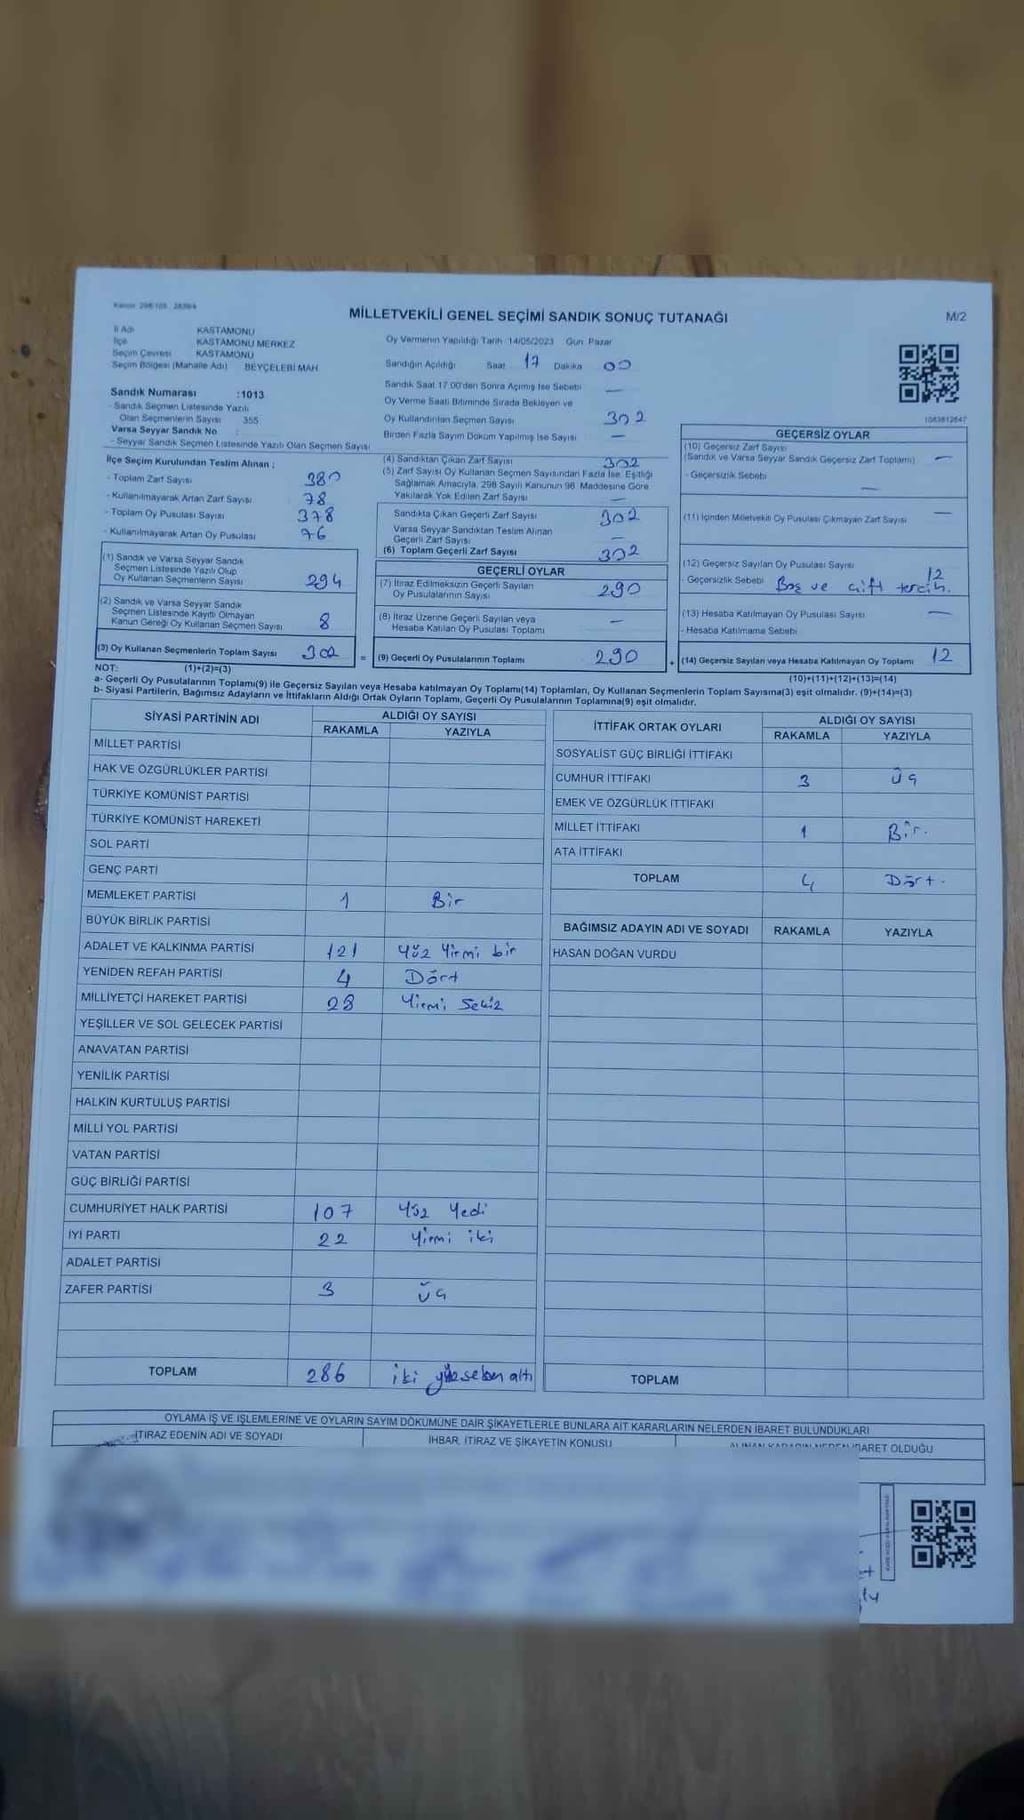 MİLLETVEKİLİ GENEL SEÇİMİ SANDIK SONUÇ TUTANAĞI
M/2
İl Adı KASTAMONU
İlçe KASTAMONU MERKEZ
Seçim Çevresi KASTAMONU
Seçim Bölgesi (Mahalle Adı) BEYÇELEBİ MAH
Sandık Numarası :1013
- Sandık Seçmen Listesinde Yazılı
Olan Seçmenlerin Sayısı 355
Varsa Seyyar Sandık No :
- Seyyar Sandık Seçmen Listesinde Yazılı Olan Seçmen Sayısı
Oy Vermenin Yapıldığı Tarih 14/05/2023 Gün Pazar
Sandığın Açıldığı Saat 17 Dakika 00
Sandık Saat 17.00'den Sonra Açımış İse Sebebi —
Oy Verme Saati Bitiminde Sırada Bekleyen ve
Oy Kullandırılan Seçmen Sayısı 302
Birden Fazla Sayım Döküm Yapılmış İse Sayısı —
1083812647
İlçe Seçim Kurulundan Teslim Alınan ;
- Toplam Zarf Sayısı 380
- Kullanılmayarak Artan Zarf Sayısı 78
- Toplam Oy Pusulası Sayısı 378
- Kullanılmayarak Artan Oy Pusulası 76
(1) Sandık ve Varsa Seyyar Sandık
Seçmen Listesinde Yazılı Olup
Oy Kullanan Seçmenlerin Sayısı 294
(2) Sandık ve Varsa Seyyar Sandık
Seçmen Listesinde Kayıtlı Olmayan
Kanun Gereği Oy Kullanan Seçmen Sayısı 8
(3) Oy Kullanan Seçmenlerin Toplam Sayısı 302
(1)+(2)=(3)
(4) Sandıktan Çıkan Zarf Sayısı 302
(5) Zarf Sayısı Oy Kullanan Seçmen Sayısından Fazla İse, Eşitliği
Sağlamak Amacıyla, 298 Sayılı Kanunun 98. Maddesine Göre
Yakılarak Yok Edilen Zarf Sayısı —
Sandıkta Çıkan Geçerli Zarf Sayısı 302
Varsa Seyyar Sandıktan Teslim Alınan
Geçerli Zarf Sayısı —
(6) Toplam Geçerli Zarf Sayısı 302
GEÇERLİ OYLAR
(7) İtiraz Edilmeksizin Geçerli Sayılan
Oy Pusulalarının Sayısı 290
(8) İtiraz Üzerine Geçerli Sayılan veya
Hesaba Katılan Oy Pusulası Toplamı —
= (9) Geçerli Oy Pusulalarının Toplamı 290
GEÇERSİZ OYLAR
(10) Geçersiz Zarf Sayısı
(Sandık ve Varsa Seyyar Sandık Geçersiz Zarf Toplamı) —
- Geçersizlik Sebebi —
(11) İçinden Milletvekili Oy Pusulası Çıkmayan Zarf Sayısı —
(12) Geçersiz Sayılan Oy Pusulası Sayısı 12
- Geçersizlik Sebebi Boş ve çift tercih.
(13) Hesaba Katılmayan Oy Pusulası Sayısı —
- Hesaba Katılmama Sebebi
+ (14) Geçersiz Sayılan veya Hesaba Katılmayan Oy Toplamı 12
(10)+(11)+(12)+(13)=(14)
NOT:
a- Geçerli Oy Pusulalarının Toplamı(9) ile Geçersiz Sayılan veya Hesaba katılmayan Oy Toplamı(14) Toplamları, Oy Kullanan Seçmenlerin Toplam Sayısına(3) eşit olmalıdır. (9)+(14)=(3)
b- Siyasi Partilerin, Bağımsız Adayların ve İttifakların Aldığı Ortak Oyların Toplamı, Geçerli Oy Pusulalarının Toplamına(9) eşit olmalıdır.
SİYASİ PARTİNİN ADI ALDIĞI OY SAYISI
RAKAMLA YAZIYLA
MİLLET PARTİSİ
HAK VE ÖZGÜRLÜKLER PARTİSİ
TÜRKİYE KOMÜNİST PARTİSİ
TÜRKİYE KOMÜNİST HAREKETİ
SOL PARTİ
GENÇ PARTİ
MEMLEKET PARTİSİ 1 Bir
BÜYÜK BİRLİK PARTİSİ
ADALET VE KALKINMA PARTİSİ 121 Yüz Yirmi bir
YENİDEN REFAH PARTİSİ 4 Dört
MİLLİYETÇİ HAREKET PARTİSİ 28 Yirmi Sekiz
YEŞİLLER VE SOL GELECEK PARTİSİ
ANAVATAN PARTİSİ
YENİLİK PARTİSİ
HALKIN KURTULUŞ PARTİSİ
MİLLİ YOL PARTİSİ
VATAN PARTİSİ
GÜÇ BİRLİĞİ PARTİSİ
CUMHURİYET HALK PARTİSİ 107 Yüz Yedi
İYİ PARTİ 22 Yirmi iki
ADALET PARTİSİ
ZAFER PARTİSİ 3 Üç
TOPLAM 286 iki yüz seksen altı
İTTİFAK ORTAK OYLARI ALDIĞI OY SAYISI
RAKAMLA YAZIYLA
SOSYALİST GÜÇ BİRLİĞİ İTTİFAKI
CUMHUR İTTİFAKI 3 Üç
EMEK VE ÖZGÜRLÜK İTTİFAKI
MİLLET İTTİFAKI 1 Bir.
ATA İTTİFAKI
TOPLAM 4 Dört.
BAĞIMSIZ ADAYIN ADI VE SOYADI RAKAMLA YAZIYLA
HASAN DOĞAN VURDU
TOPLAM
OYLAMA İŞ VE İŞLEMLERİNE VE OYLARIN SAYIM DÖKÜMÜNE DAİR ŞİKAYETLERLE BUNLARA AİT KARARLARIN NELERDEN İBARET BULUNDUKLARI
İTİRAZ EDENİN ADI VE SOYADI İHBAR, İTİRAZ VE ŞİKAYETİN KONUSU ALINAN KARARIN NEDEN İBARET OLDUĞU